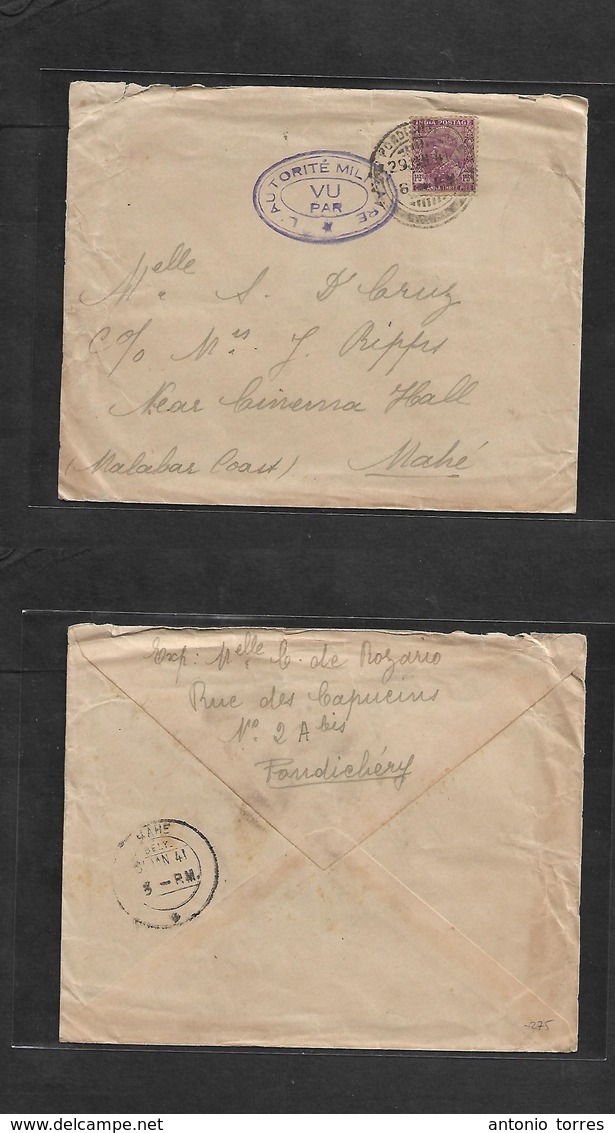 INDIA POSTAG
PONDICH
29 JAN 41
6
L'AUTORITÉ MILITAIRE
VU
PAR
Melle S. D'Cruz
c/o Mrs J. Ripps
Near Cinema Hall
(Malabar Coast) Mahé
Exp: Melle C. de Rozario
Rue des Capucins
No. 2 A bis
Pondichéry
MAHE
DELY.
JAN 41
3 - P.M.
-275
antonio torres